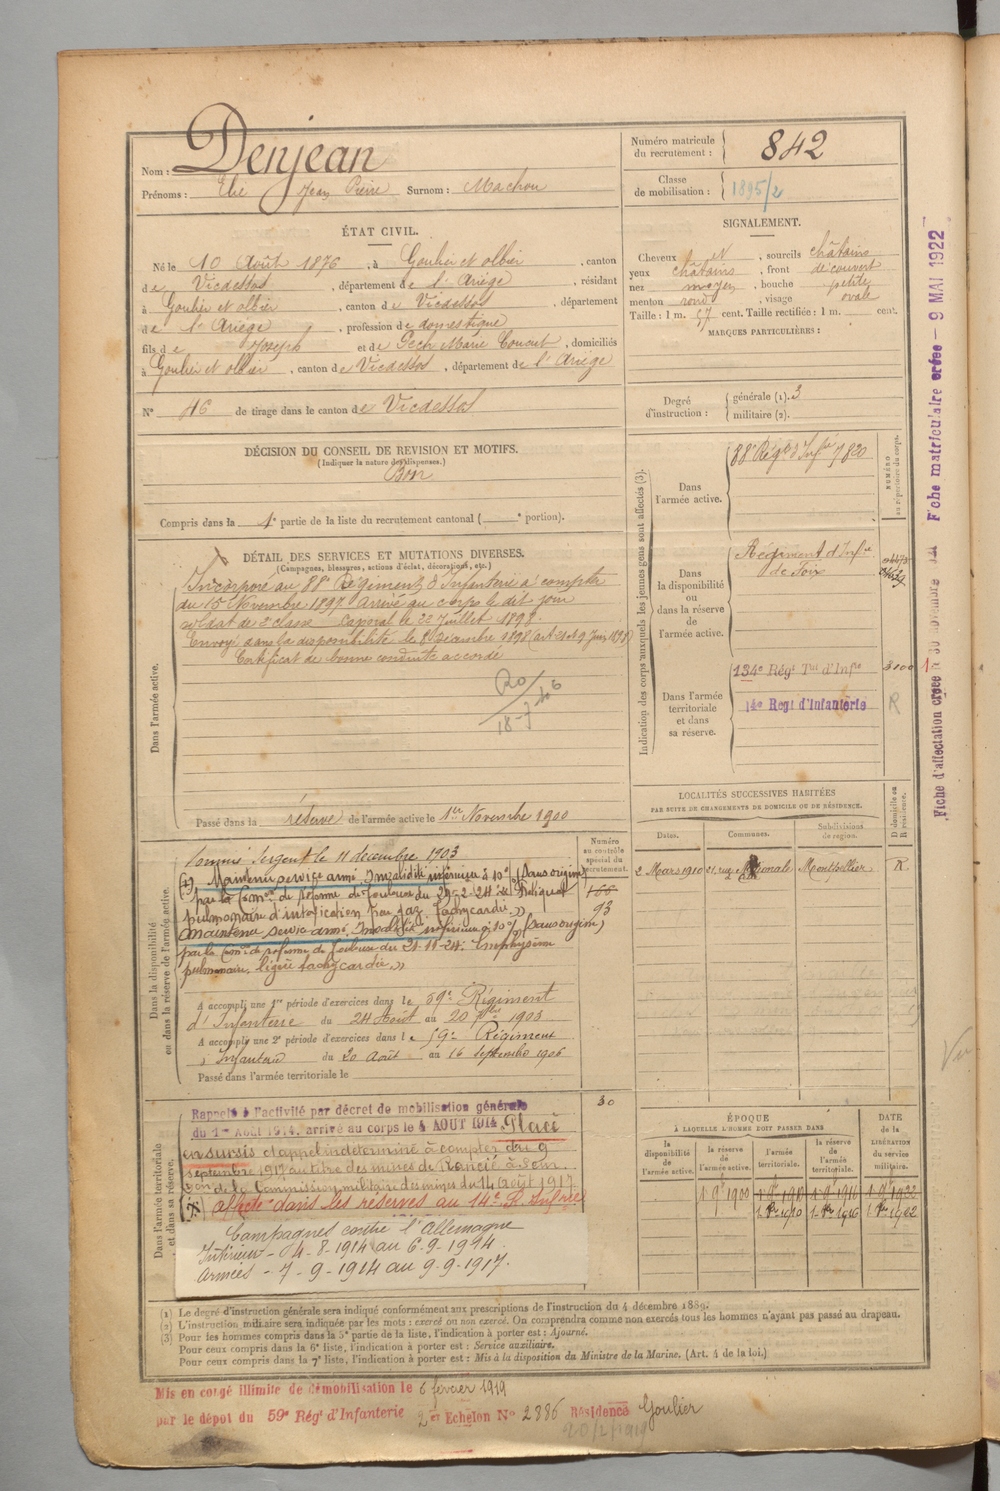 Nom : Denjean
Prénoms : Elie Jean Pierre Surnom : Machou
Numéro matricule du recrutement : 842
Classe de mobilisation : 1895/2
ÉTAT CIVIL.
Né le 10 Août 1876, à Goulier et olbier, canton
de Vicdessos, département de l'Ariège, résidant
à Goulier et olbier, canton de Vicdessos, département
de l'Ariège, profession de domestique
fils de Joseph et de Pech Marie, domiciliés
à Goulier et ollier, canton de Vicdessos, département de l'Ariège
N° 46 de tirage dans le canton de Vicdessos
SIGNALEMENT.
Cheveux et, sourcils châtains
yeux châtains, front découvert
nez moyen, bouche petite
menton rond, visage ovale
Taille : 1 m. 57 cent. Taille rectifiée : 1 m. cent.
MARQUES PARTICULIÈRES :
Degré d'instruction : générale (1). 3
militaire (2).
DÉCISION DU CONSEIL DE REVISION ET MOTIFS.
(Indiquer la nature des dispenses.)
Bon
Compris dans la 1e partie de la liste du recrutement cantonal ( e portion).
DÉTAIL DES SERVICES ET MUTATIONS DIVERSES.
(Campagnes, blessures, actions d'éclat, décorations, etc.)
Dans l'armée active.
Incorporé au 88e Régiment d'Infanterie à compter
du 15 Novembre 1897 Arrivé au corps le dit jour
soldat de 2e classe Caporal le 22 Juillet 1898.
Envoyé dans la disponibilité le 8 Décembre 1898
Certificat de bonne conduite accordé
20/46
18-7
Passé dans la réserve de l'armée active le 1er Novembre 1900
Indication des corps auxquels les jeunes gens sont affectés (3).
NUMÉRO au répertoire du corps.
Dans l'armée active.
88e Régt d'Infie 7820
Dans la disponibilité ou dans la réserve de l'armée active.
Régiment d'Infie
de Foix
Dans l'armée territoriale et dans sa réserve.
134e Régt Tal d'Infie 3100
14e Regt d'Infanterie R
LOCALITÉS SUCCESSIVES HABITÉES
PAR SUITE DE CHANGEMENTS DE DOMICILE OU DE RÉSIDENCE.
Dates. Communes. Subdivisions de région. D domicile ou R résidence.
2 Mars 1910 21, rue Nationale Montpellier R
Dans la disponibilité ou dans la réserve de l'armée active.
Numéro au contrôle spécial du recrutement.
166
93
Nommé Sergent le 11 décembre 1903
(+) Maintenu service armé Invalidité inférieure à 10% (Sans origine)
par la Comon de réforme de Toulouse du 29-2-24 de Reliquat
pulmonaire d'intoxication par gaz. Tachycardie.»
Maintenu service armé. Invalidité inférieure à 10% (sans origine)
par la Comon de réforme de Toulouse du 21-11-24. Emphysème
pulmonaire, légère tachycardie.»
A accompli une 1re période d'exercices dans le 59e Régiment
d'Infanterie du 24 Août au 20 7bre 1903
A accompli une 2e période d'exercices dans le 59e Régiment
d'Infanterie du 20 Août au 16 Septembre 1906
Passé dans l'armée territoriale le
Dans l'armée territoriale et dans sa réserve.
30
Rappelé à l'activité par décret de mobilisation générale
du 1er Août 1914. arrivé au corps le 4 AOUT 1914. Placé
en sursis d'appel indéterminé à compter du 9
septembre 1917 au titre des mines de Rancié à Sem
Don de la Commission militaire des mines du 14 août 1917.
(+) affecté dans les réserves au 14e R. Infrie
Campagnes contre l'Allemagne
Intérieur - 4-8-1914 au 6-9-1914.
Armées - 7-9-1914 au 9-9-1917.
ÉPOQUE
À LAQUELLE L'HOMME DOIT PASSER DANS
DATE de la LIBÉRATION du service militaire.
la disponibilité de l'armée active. la réserve de l'armée active. l'armée territoriale. la réserve de l'armée territoriale.
1 9bre 1900 1 9bre 1910 1 9bre 1916 1 9bre 1922
1. 8bre 1910 1. 8bre 1916 1. 8bre 1922
(1) Le degré d'instruction générale sera indiqué conformément aux prescriptions de l'instruction du 4 décembre 1889.
(2) L'instruction militaire sera indiquée par les mots : exercé ou non exercé. On comprendra comme non exercés tous les hommes n'ayant pas passé au drapeau.
(3) Pour les hommes compris dans la 5e partie de la liste, l'indication à porter est : Ajourné.
Pour ceux compris dans la 6e liste, l'indication à porter est : Service auxiliaire.
Pour ceux compris dans la 7e liste, l'indication à porter est : Mis à la disposition du Ministre de la Marine. (Art. 4 de la loi.)
Mis en congé illimité de démobilisation le 6 février 1919
par le dépôt du 59e Régt d'Infanterie 2e Echelon N° 2886 Résidence Goulier
Fiche d'affectation créée le 30 novembre Fiche matriculaire créée - 9 MAI 1922
Vu